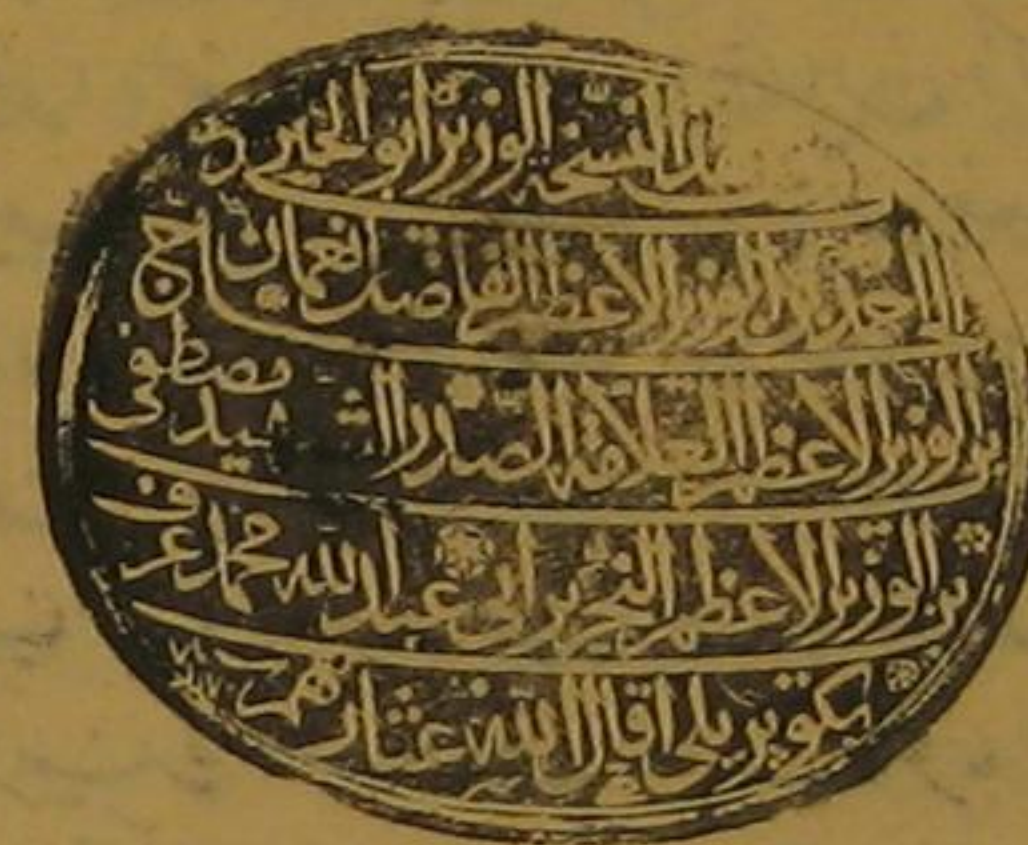 النسخة الوزير ابو الخير
احمد بن الوزير الاعظم الفاضل نعمان
بن الوزير الاعظم العلامة الصدر الشهيد مصطفى
بن الوزير الاعظم النحرير ابي عبد الله محمد عرف
بكوپريلي اقال الله عثارهم